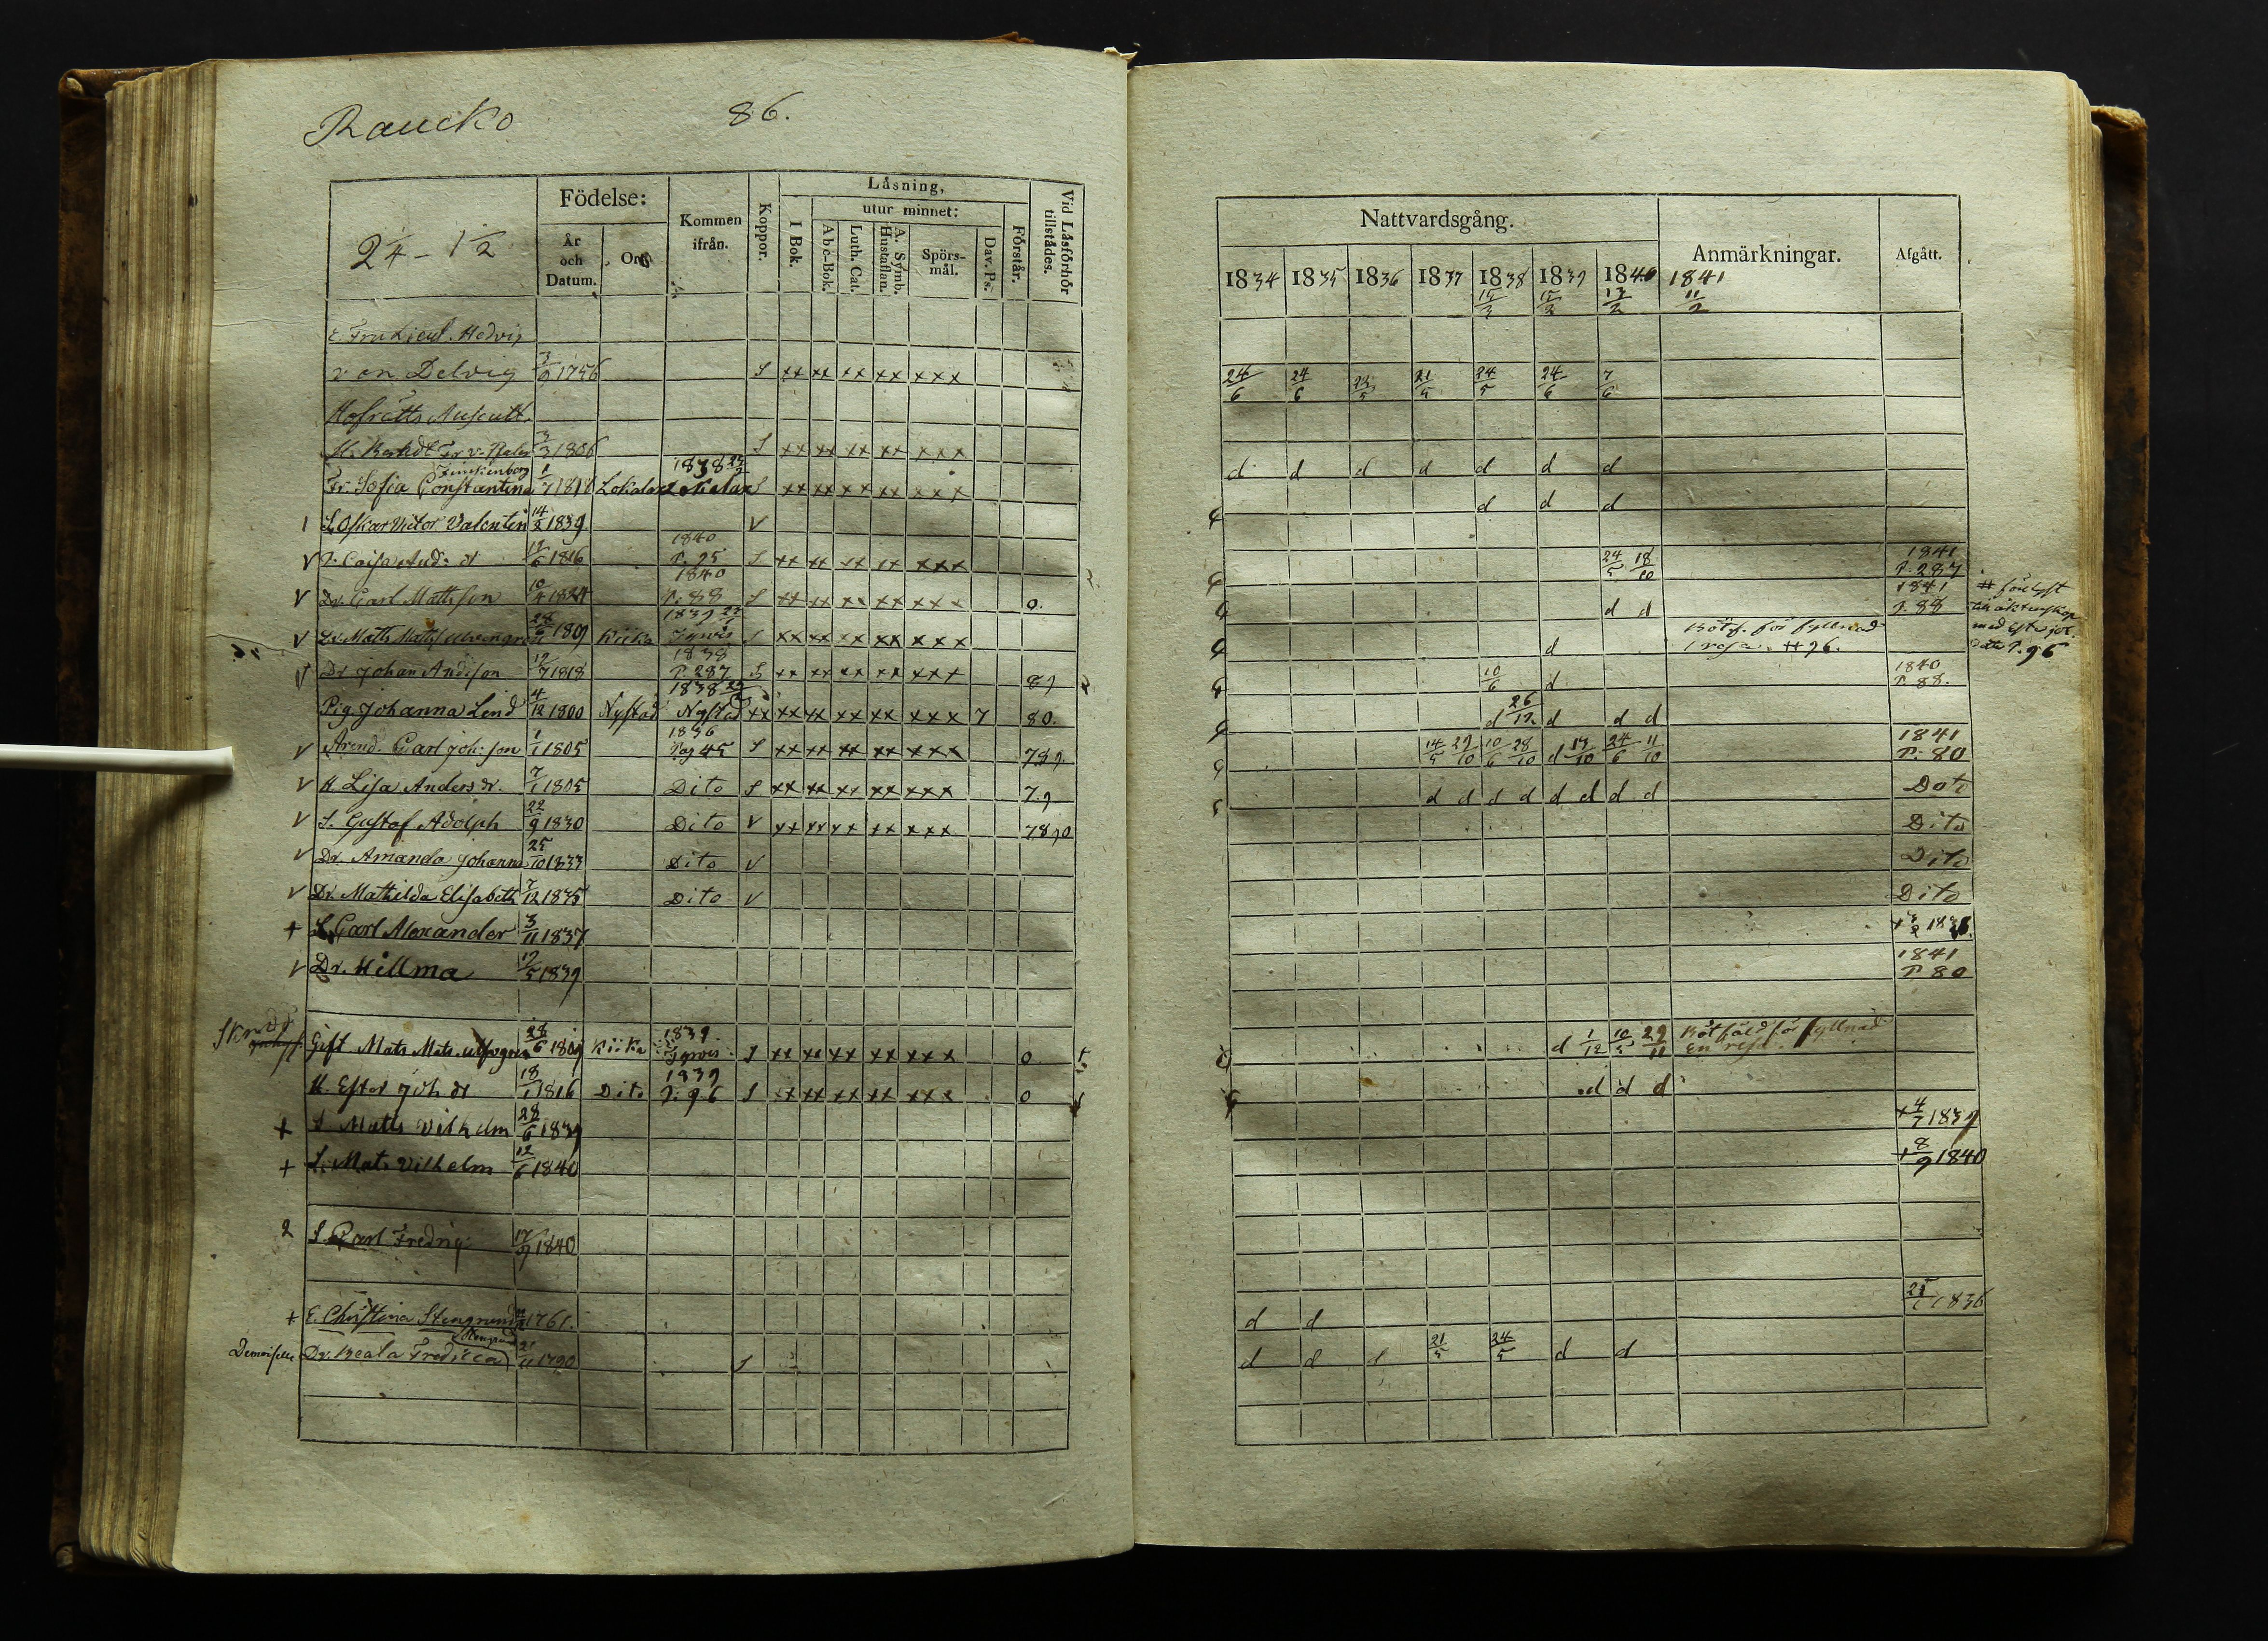 Raucko 86.
24 - 1/2
Födelse:
År och Datum.
Ort
Kommen ifrån.
Koppor.
Låsning,
I Bok.
utur minnet:
Abc-Bok.
Luth. Cat.
A. Symb. Hustaflan.
Spörs-mål.
Dav. Ps.
Förstår.
Vid Låsförhör tillstådes.
Nattvardsgång.
1834 1835 1836 1837 1838 1839 1840 1841
Anmärkningar.
Afgått.
E. Fru Lieut. Hedvig
von Delvig 1756 S xx xx xx xx xxx 24/6 24/6 21/5 24/5 24/6 7/6
Hofrätts Auscult.
3/3 1806 S xx xx xx xx xxx d d d d d d d
Fr. Sofia Constantina 1/7 1818 Lokalax 1838 Lokalax S xx xx xx xx xxx d d d
1 S. Oskar Victor Valentin 1839 v
v P. Caisa And: dr 1816 1840 P. 25 S xx xx xx xx xxx 24/5 18/10 1841 P. 287
v Dr. Carl Mattsson 10/4 1824 1840 P. 88 S xx xx xx xx xxx 0. d d 1841 P. 88
v 28/6 1809 Kiika 1839 S xx xx xx xx xxx d Bötf. för fyllnad 1 resa. # 96.
v Dr Johan Andsson 1818 1838 P. 287 S xx xx xx xx xxx 89 10/6 d 1840 P. 88.
Pig. Johanna Lind 4/12 1800 Nystad 1838 Nystad xx xx xx xx xx xxx 7 80. d 26/12 d d d
v Arend. Carl Joh:son 1/1 1805 1836 Pag 45 S xx xx xx xx xxx 789 14/5 29/10 10/6 28/10 d 24/6 11/10 1841 P. 80
v H. Lisa Anders dr. 7/1 1805 Dito S xx xx xx xx xxx 7.9 d d d d d d d d Dito
v S. Gustaf Adolph 22/9 1830 Dito v xx xx xx xx xxx 7890 Dito
v Dr. Amanda Johanna 25/10 1833 Dito v Dito
v Dr. Mathilda Elisabeth 7/12 1835 Dito v Dito
+ S. Carl Alexander 3/11 1837
v Dr. Hillma 1839 1841 P 80
Gift Mats Mats. 28/6 1809 Kiika 1839 S xx xx xx xx xxx 0 d 1/12 10/5 29/11 Bötfäld för fyllnad En resa.
H. Ester Joh dr 18/1 1816 Dito 1839 P. 96 S xx xx xx xx xxx 0 d d d
+ S Matts Vilhelm 28/6 1839 + 4/7 1839
+ S. Mats Vilhelm 12/6 1840 + 8/9 1840
2 S. Carl Fredrig 17/9 1840
+ E. Christina Stengrund 1761. d d 1836
Demoiselle Dr. Beata Fredrica 1790 S d d 21/5 24/5 d d
# förlyst
till äktenskap
med
P. 96